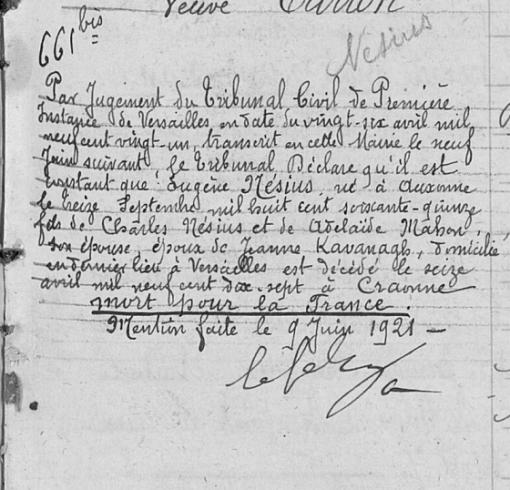 Veuve
661 bis
Nésius
Par Jugement du Tribunal Civil de Première
Instance de Versailles en date du vingt-six avril mil
neuf cent vingt-un, transcrit en cette Mairie le neuf
Juin suivant, le Tribunal Déclare qu'il est
constant que Eugène Nésius, né à Auxonne
le treize Septembre mil huit cent soixante-quinze
fils de Charles Nésius et de Adelaïde Mahon,
son épouse, époux de Jeanne Kavanagh, domicilié
en dernier lieu à Versailles est décédé le seize
avril mil neuf cent dix-sept à Craonne
mort pour la France.
Mention faite le 9 Juin 1921 —